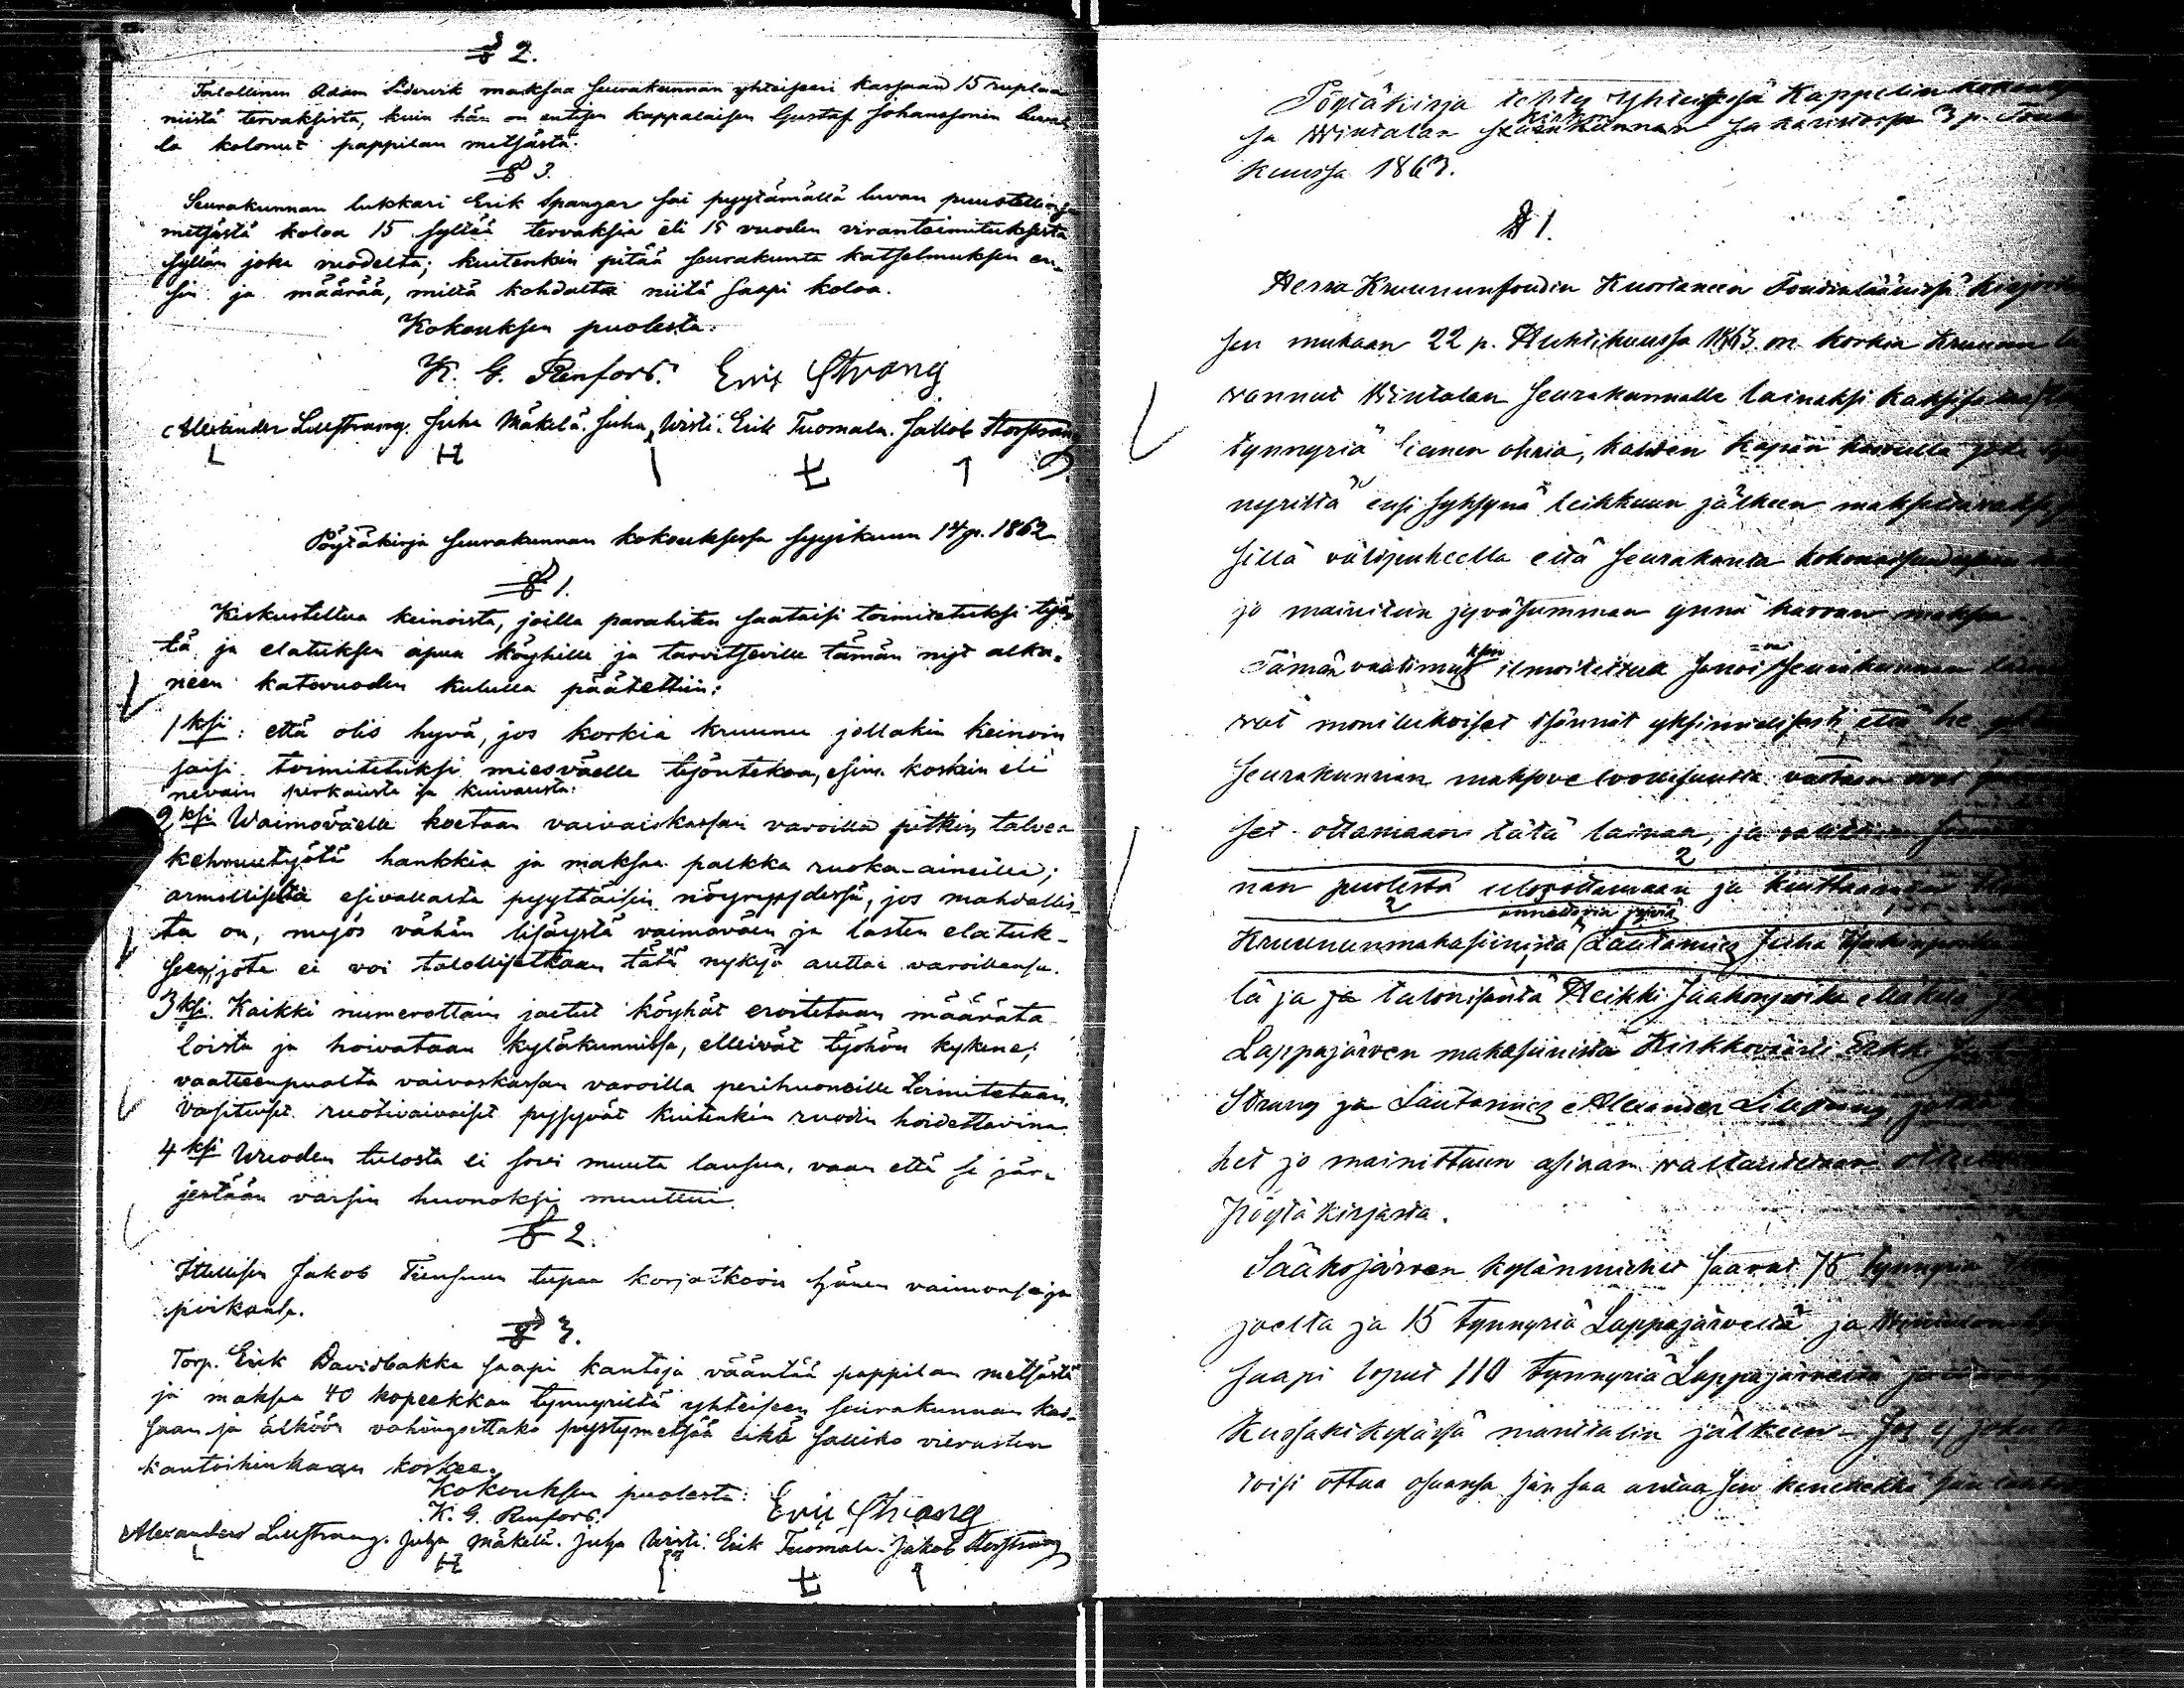 § 2.
Talollinen Adam Sidervik maksaa seurakunnan yhteiseen kassaan 15 ruplaa
niistä tervaksista, kuin hän on entisen kappalaisen Gustaf Johanssonin
la kolonut pappilan metsästä.
§ 3.
Seurakunnan lukkari Erik Spangar sai pyytämällä luvan puustellinsa
metsästä koloa 15 syltää tervaksia eli 15 vuoden virantoimituksesta
syllän joka vuodelta; kuitenkin pitää seurakunta katselmuksen en-
sin ja määrää, miltä kohdalta niitä saapi koloa.
Kokouksen puolesta:
K. G. Renfors. Eric Strang
Alexander Lillstrang. Juha Mäkelä. Juha Wirsti. Erik Tuomala. Jakob Storstrang
Pöytäkirja seurakunnan kokouksessa syyskuun 14 p. 1862
§ 1.
Keskustellua keinoista, joilla parahiten saataisi toimitetuksi työ-
tä ja elatuksen apua köyhille ja tarvitseville tämän nyt alka-
neen katovuoden kululla päätettiin:
1ksi: että olis hyvä, jos korkia kruunu jollakin keinoin
saisi toimitetuksi miesväelle työntekoa, esim. koskein eli
nevain perkausta ja kuivausta:
2ksi Waimoväelle koetaan vaivaiskassan varoilla pitkin talvea
kehruutyötä hankkia ja maksaa palkka ruoka-aineilla;
armolliselta esivallalta pyyttäisin nöyryydessä, jos mahdollis-
ta on, myös vähän lisäystä vaimoväen ja lasten elatuk-
seen, jota ei voi talollisetkaan tätä nykyä auttaa varoillansa.
3ksi. Kaikki numerottain jaetut köyhät eroitetaan määrätä-
loista ja hoivataan kyläkunnissa, elleivät työhön kykene;
vaatteenpuolta vaivaskassan varoilla perihuoneille toimitetaan.
Vasituiset ruotivaivaiset pysyvät kuitenkin ruodin hoidettavina
4ksi Wuoden tulosta ei sovi muuta lausua, vaan että se jär-
jestään varsin huonoksi muuttui.
§ 2.
Itellisen Jakob Tiensuun tupaa korjatkoon hänen vaimonsa ja
poikansa.
§ 3.
Torp. Erik Davidbakka saapi kantoja vääntää pappilan metsästä
ja maksaa 40 kopeekkaa tynnyriltä yhteiseen seurakunnan kas-
saan ja älköön vahingoittako pystymetsää eikä salliko vierasten
kantoihinkaan koskea.
Kokouksen puolesta:
K. G. Renfors. Eric Strang
Alexander Lillstrang. Juha Mäkelä. Juha Wirsti. Erik Tuomala. Jakob Storstrang
Pöytäkirja tehty Yhteisessä Kappelin
ja Wintalan kirkon seurakunnan sa 3 p. Touko
kuussa 1863.
§ 1.
Herra Kruununfoudin Kuortaneen Foudinläänissä kirjoituk
sen mukaan 22 p. Huhtikuussa 1863 on korkia Kruunu lu
vannut Wintalan Seurakunnalle lainaksi kaksisataa
tynnyriä siemen ohria, kahden kapan kasvulla joka tyn
nyriltä ensi syksynä leikkuun jälkeen maksettavaksi
sillä välipuheella että seurakunta
jo mainitun jyväsumman ynnä kasvun maksaa.
Tämän vaatimuksen ilmoitettua sanoi-vat seurakunnan
wat monilukoiset isännät yksimielisesti että he
seurakunnan maksovelvollisuutta vastaan ovat
set ottamaan tätä lainaa, ja valittiin
nan puolesta ulosottamaan ja kuittaamaan
Kruununmakasiinista annettavia jyviä Lautamies Juha
lä ja ja talonisäntä Heikki Jaakonpoika Mäkelä
Lappajärven makasiinista Kirkkoväärti Erkki
Strang ja Lautamies Alexander Lillstrang,
het jo mainittuun asiaan waltautetaan
Pöytäkirjasta.
Sääksjärven kylänmiehet saavat 75 tynnyriä
joelta ja 15 tynnyriä Lappajärveltä ja Wintalan
saapi loput 110 tynnyriä Lappajärveltä
Kussakikylässä manttalin jälkeen. Jos ej joku
toisi ottaa osuansa hän saa antaa sen kenellekkä